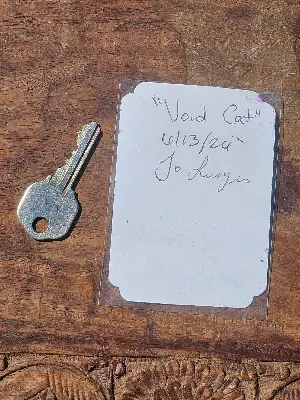 "Void Cat"
6/13/24
Jo